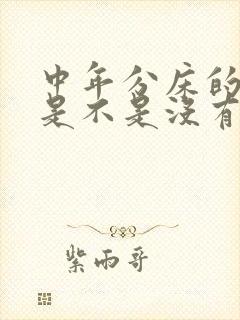 中年分床的
是不是没有
紫雨哥